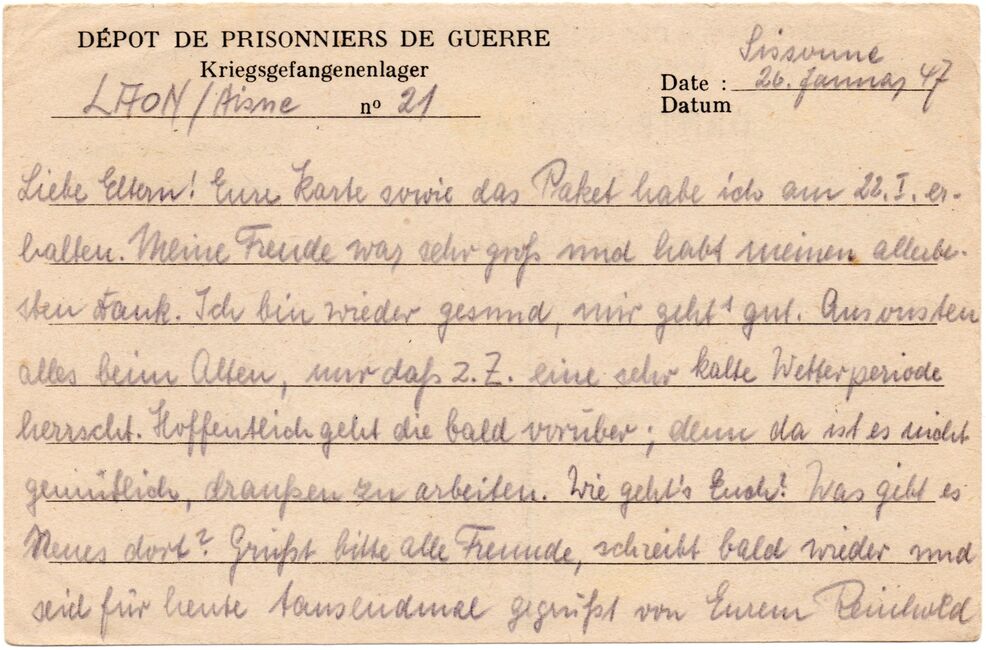 DÉPOT DE PRISONNIERS DE GUERRE
Kriegsgefangenenlager
LAON/Aisne nº 21
Sissonne
Date : 26. Januar 47
Datum
Liebe Eltern! Eure Karte sowie das Paket habe ich am 22.I. er-
halten. Meine Freude war sehr groß und habt meinen allerbe-
sten Dank. Ich bin wieder gesund, mir geht's gut. Ansonsten
alles beim Alten, nur daß z.Z. eine sehr kalte Wetterperiode
herrscht. Hoffentlich geht die bald vorüber; denn da ist es nicht
gemütlich, draußen zu arbeiten. Wie geht's Euch? Was gibt es
Neues dort? Grüßt bitte alle Freunde, schreibt bald wieder und
seid für heute tausendmal gegrüßt von Eurem Reinhold